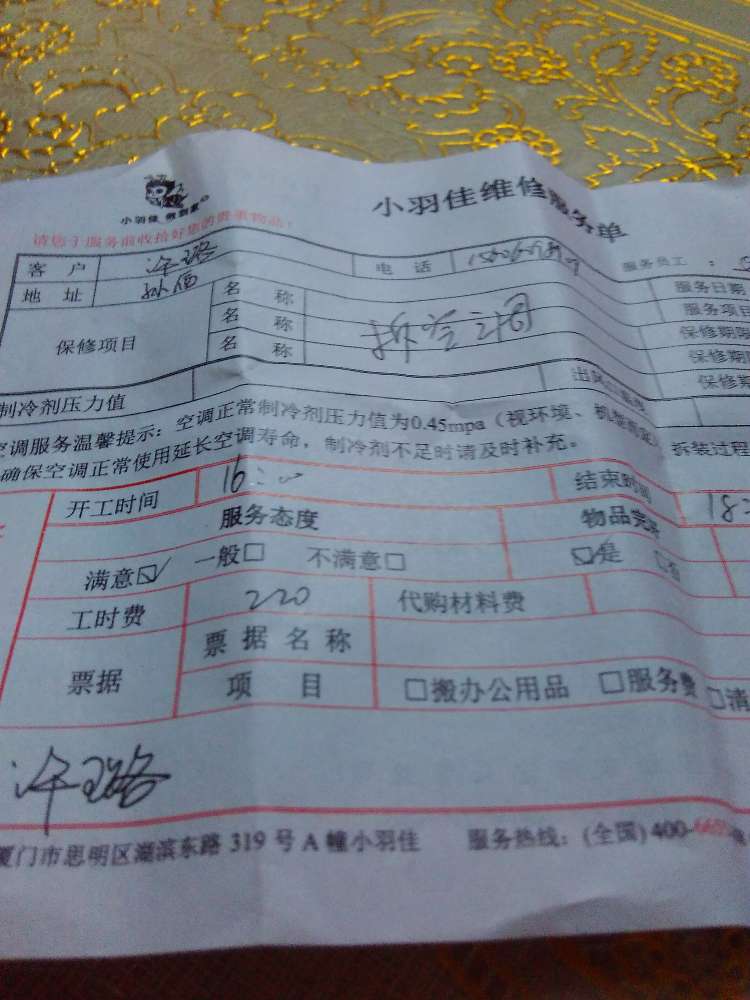 小羽佳 做到家
小羽佳维修服务单
请您于服务前收拾好您的贵重物品!
服务员工:
客户 许璐 电话
服务日期
地址
服务项目
保修项目 名称
名称 拆空调
名称
保修期限
保修期
保修期
制冷剂压力值
空调服务温馨提示:空调正常制冷剂压力值为0.45mpa(视环境、 拆装过程
确保空调正常使用延长空调寿命,制冷剂不足时请及时补充。
开工时间 16:00 结束时间 18:
服务态度 物品完
满意☑ 一般□ 不满意□ ☑是 □否
工时费 220 代购材料费
票据 票据名称
项目 □搬办公用品 □服务费 □清
许璐
厦门市思明区湖滨东路 319 号 A 幢小羽佳 服务热线:(全国) 400-